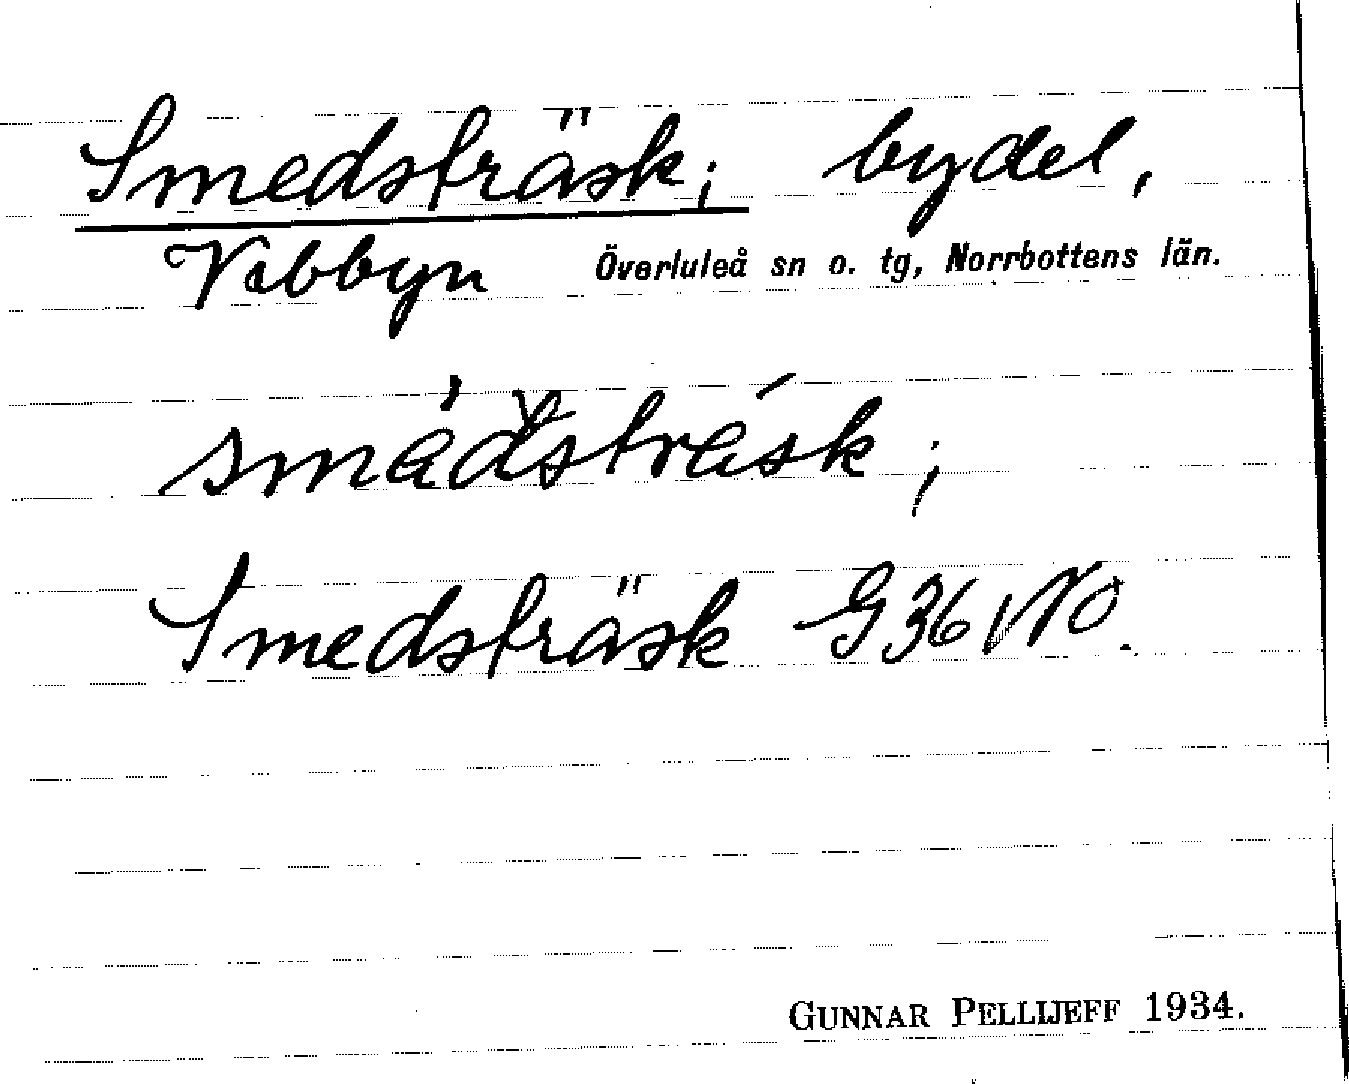 Smedsträsk; bydel,
Vibbyn Överluleå sn o. tg, Norrbottens län.
smédstrésk;
Smedsträsk G 36 NO.
GUNNAR PELLIJEFF 1934.